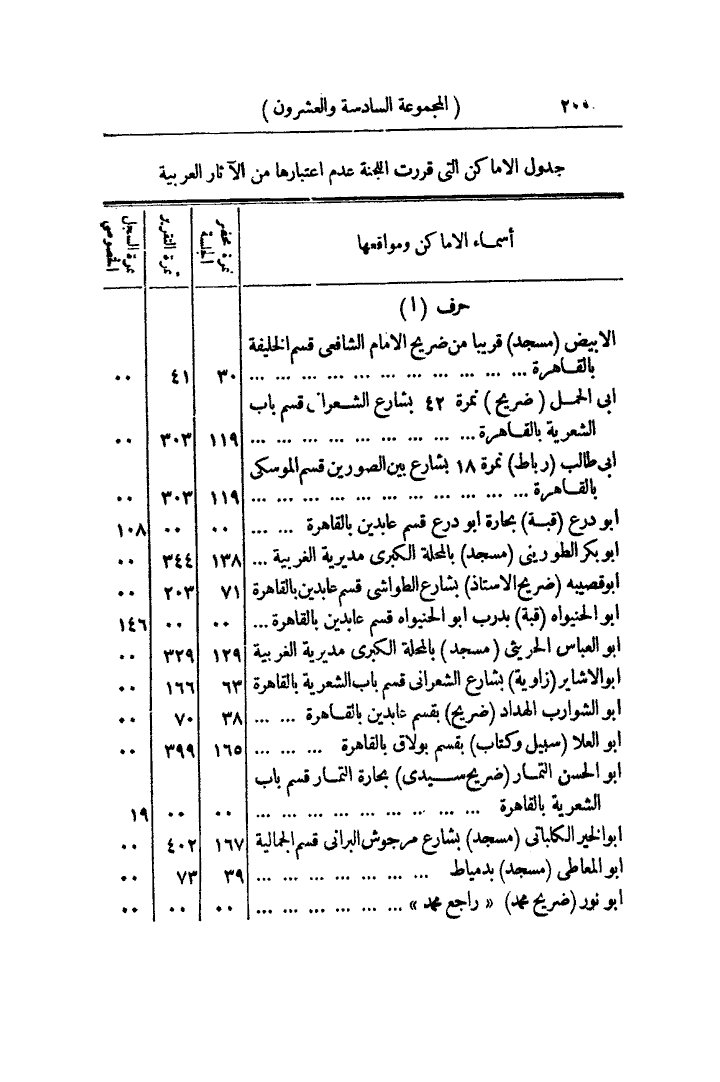 ٢٠٠ ( المجموعة السادسة والعشرون )
جدول الاماكن التى قررت اللجنة عدم اعتبارها من الآثار العربية
أسماء الاماكن ومواقعها نمرة محضر الجلسة نمرة التقرير نمرة السجل الخصوصى
حرف (ا)
الابيض (مسجد) قريبا من ضريح الامام الشافعى قسم الخليفة
بالقاهرة ... ... ... ... ... ... ... ... ... ... ... ... ٣٠ ٤١ ٠٠
ابى الحمل ( ضريح ) نمرة ٤٢ بشارع الشعرانى قسم باب
الشعرية بالقاهرة... ... ... ... ... ... ... ... ... ١١٩ ٣٠٣ ٠٠
ابى طالب (رباط) نمرة ١٨ بشارع بين الصورين قسم الموسكى
بالقاهرة ... ... ... ... ... ... ... ... ... ... ... ١١٩ ٣٠٣ ٠٠
ابو درع (قبة) بحارة ابو درع قسم عابدين بالقاهرة ... ... ٠٠ ٠٠ ١٠٨
ابو بكر الطورينى (مسجد) بالمحلة الكبرى مديرية الغربية ... ١٣٨ ٣٤٤ ٠٠
ابوقصيبه (ضريح الاستاذ) بشارع الطواشى قسم عابدين بالقاهرة ٧١ ٢٠٣ ٠٠
ابو الحنيواه (قبة) بدرب ابو الحنيواه قسم عابدين بالقاهرة ... ٠٠ ٠٠ ١٤٦
ابو العباس الحريثى (مسجد) بالمحلة الكبرى مديرية الغربية ١٢٩ ٣٢٩ ٠٠
ابو الاشاير (زاوية) بشارع الشعرانى قسم باب الشعرية بالقاهرة ٦٣ ١٦٦ ٠٠
ابو الشوارب الهداد (ضريح) بقسم عابدين بالقاهرة ... ... ٣٨ ٧٠ ٠٠
ابو العلا (سبيل وكتاب) بقسم بولاق بالقاهرة ... ... ... ١٦٥ ٣٩٩ ٠٠
ابو الحسن التمار (ضريح سيدى) بحارة التمار قسم باب
الشعرية بالقاهرة ... ... ... ... ... ... ... ... ... ٠٠ ٠٠ ١٩
ابو الخير الكلباتى (مسجد) بشارع مرجوش البرانى قسم الجمالية ١٦٧ ٤٠٢ ٠٠
ابو المعاطى (مسجد) بدمياط ... ... ... ... ... ... ... ٣٩ ٧٣ ٠٠
ابو نور (ضريح محمد) « راجع محمد » ... ... ... ... ... ... ٠٠ ٠٠ ٠٠